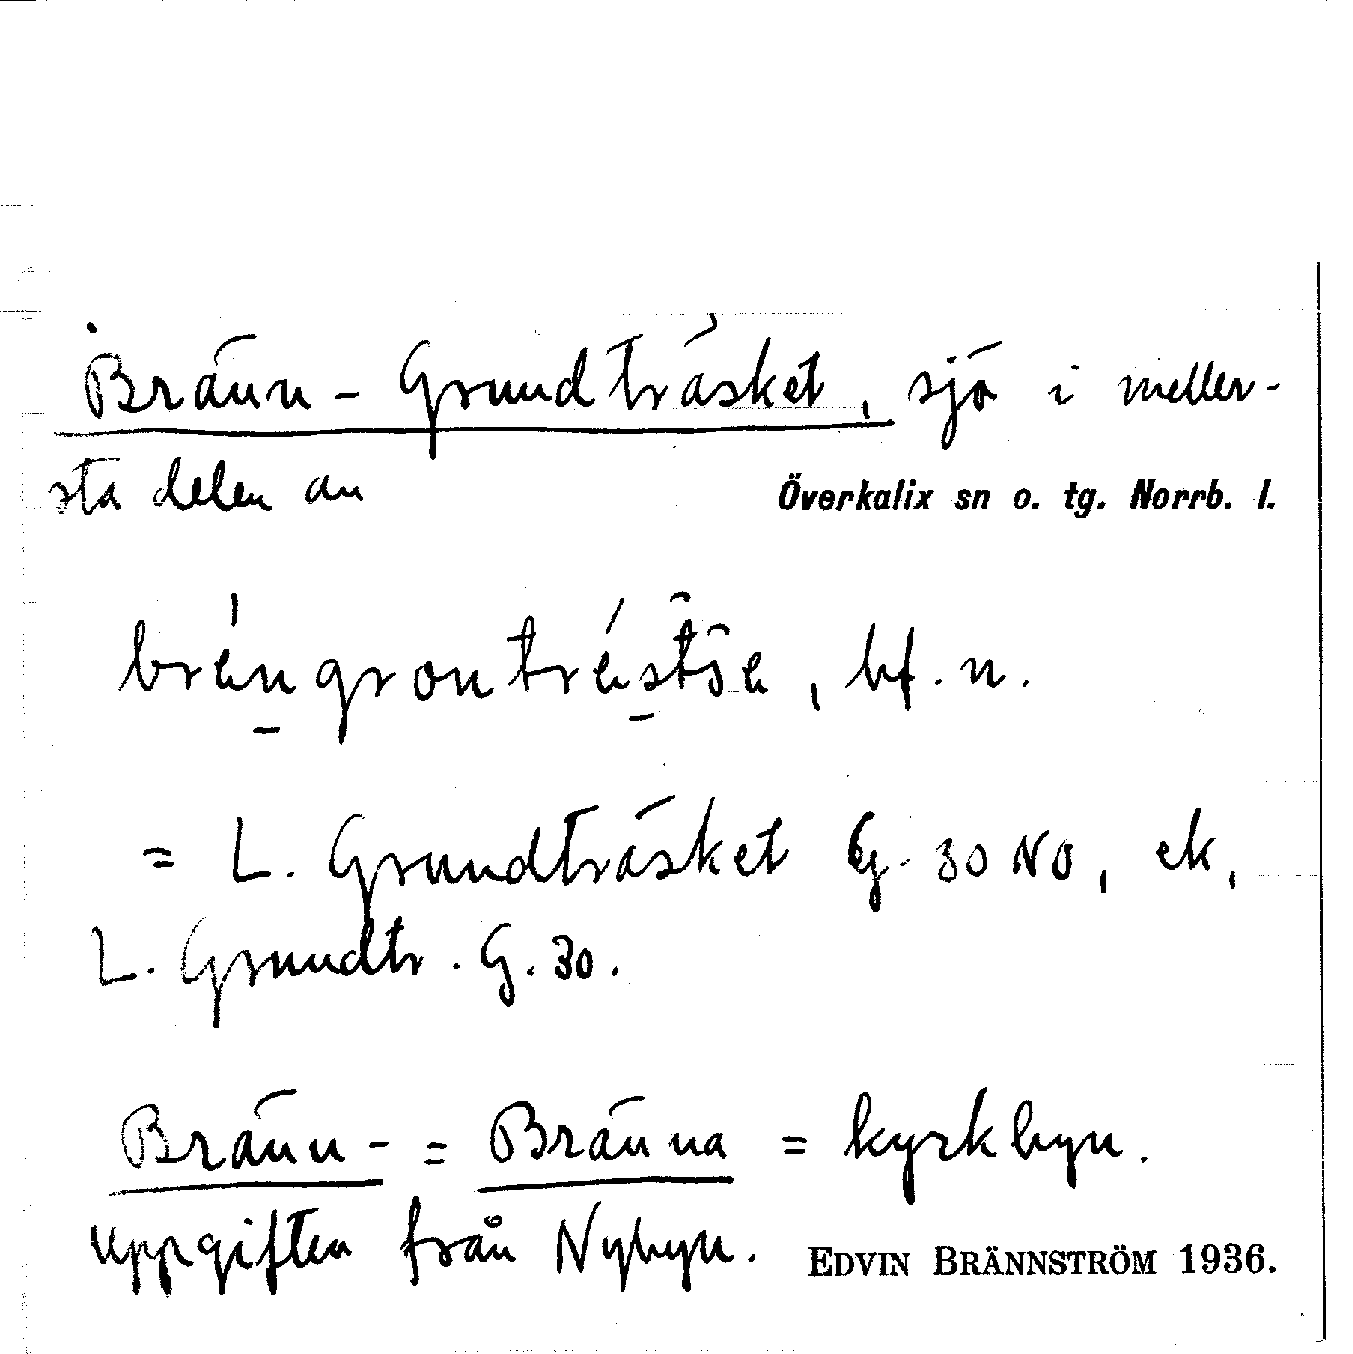 Bränn-Grundträsket, sjö i meller-
sta delen av Överkalix sn o. tg. Norrb. l.
bf. n.
= L. Grundträsket G. 30 NO, ek,
L. Grundtr. G. 30.
Bränn- = Bränna = kyrkbyn.
uppgiften från Nybyn. EDVIN BRÄNNSTRÖM 1936.